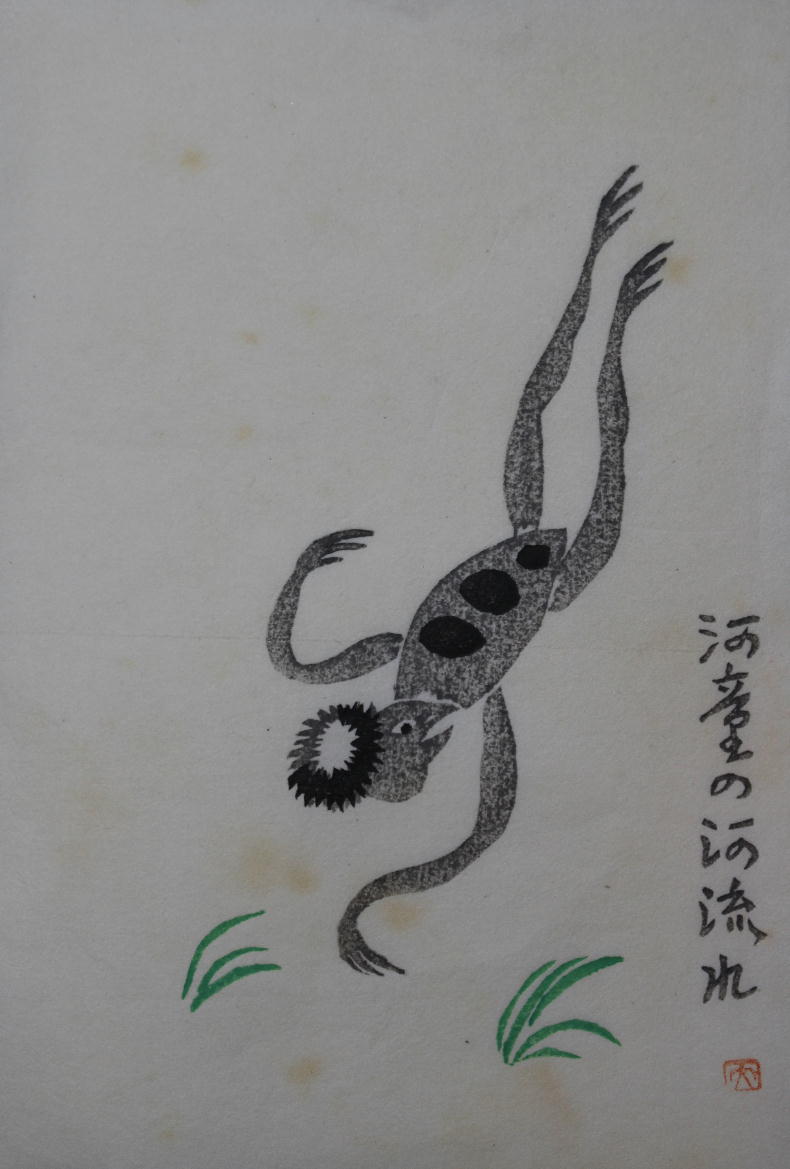 河童の河流れ